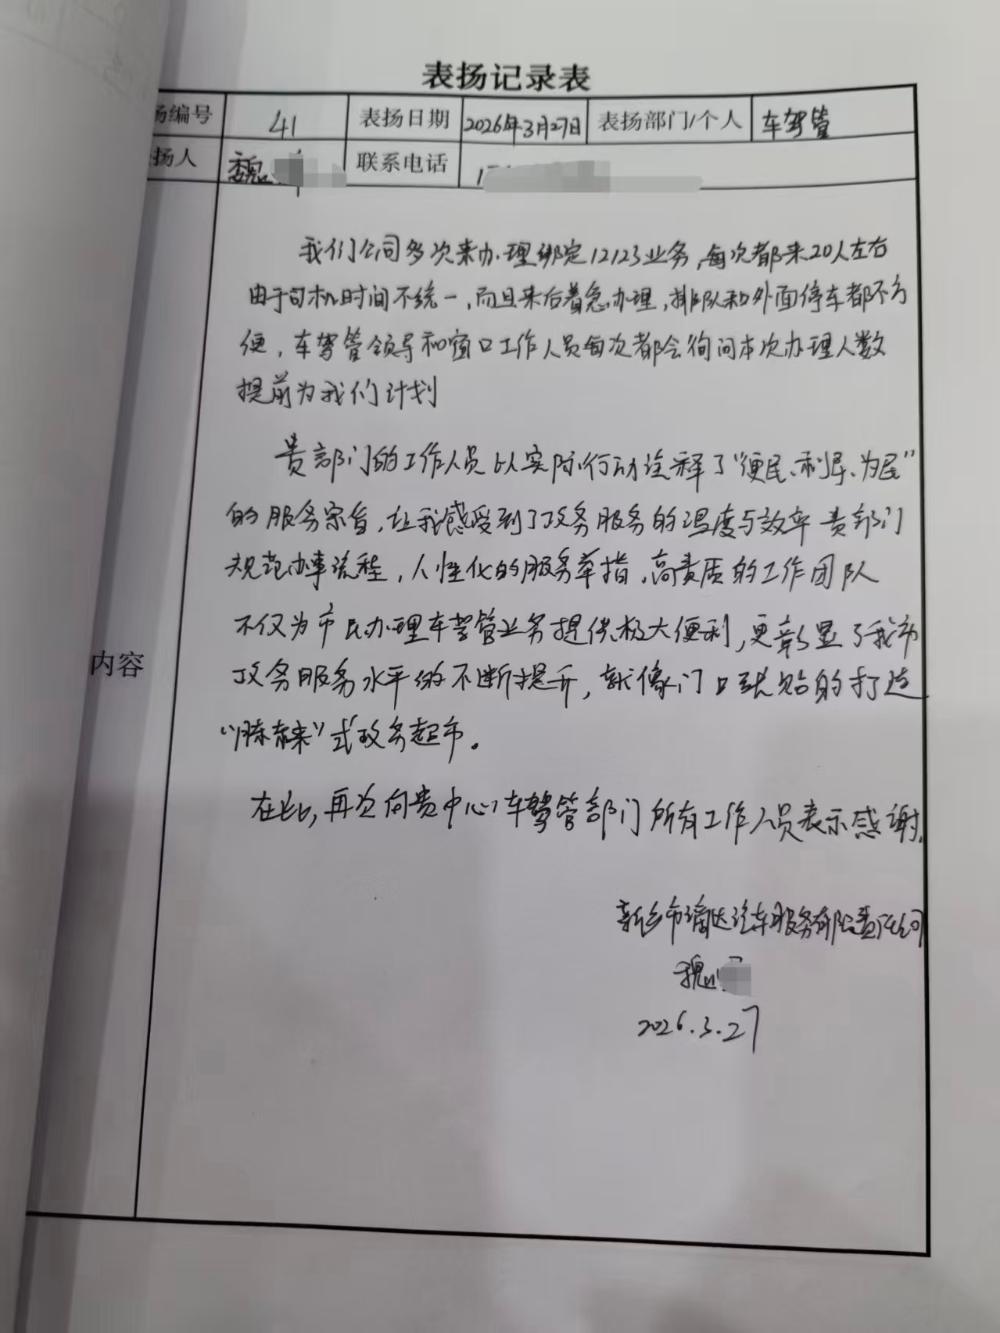 表扬记录表
扬编号 41 表扬日期 2026年3月27日 表扬部门/个人 车驾管
扬人 魏 联系电话
内容
我们公司多次来办理绑定12123业务,每次都来20人左右
由于司机时间不统一,而且来后着急办理,排队和外面停车都不方
便,车驾管领导和窗口工作人员每次都会询问本次办理人数
提前为我们计划
贵部门的工作人员以实际行动诠释了“便民、利民、为民”
的服务宗旨,让我感受到了政务服务的温度与效率 贵部门
规范办事流程,人性化的服务举措,高素质的工作团队
不仅为市民办理车驾管业务提供极大便利,更彰显了我市
政务服务水平的不断提升,就像门口张贴的打造
“胖东来”式政务超市。
在此,再次向贵中心车驾管部门所有工作人员表示感谢.
新乡市 达汽车服务有限责任公司
魏
2026.3.27